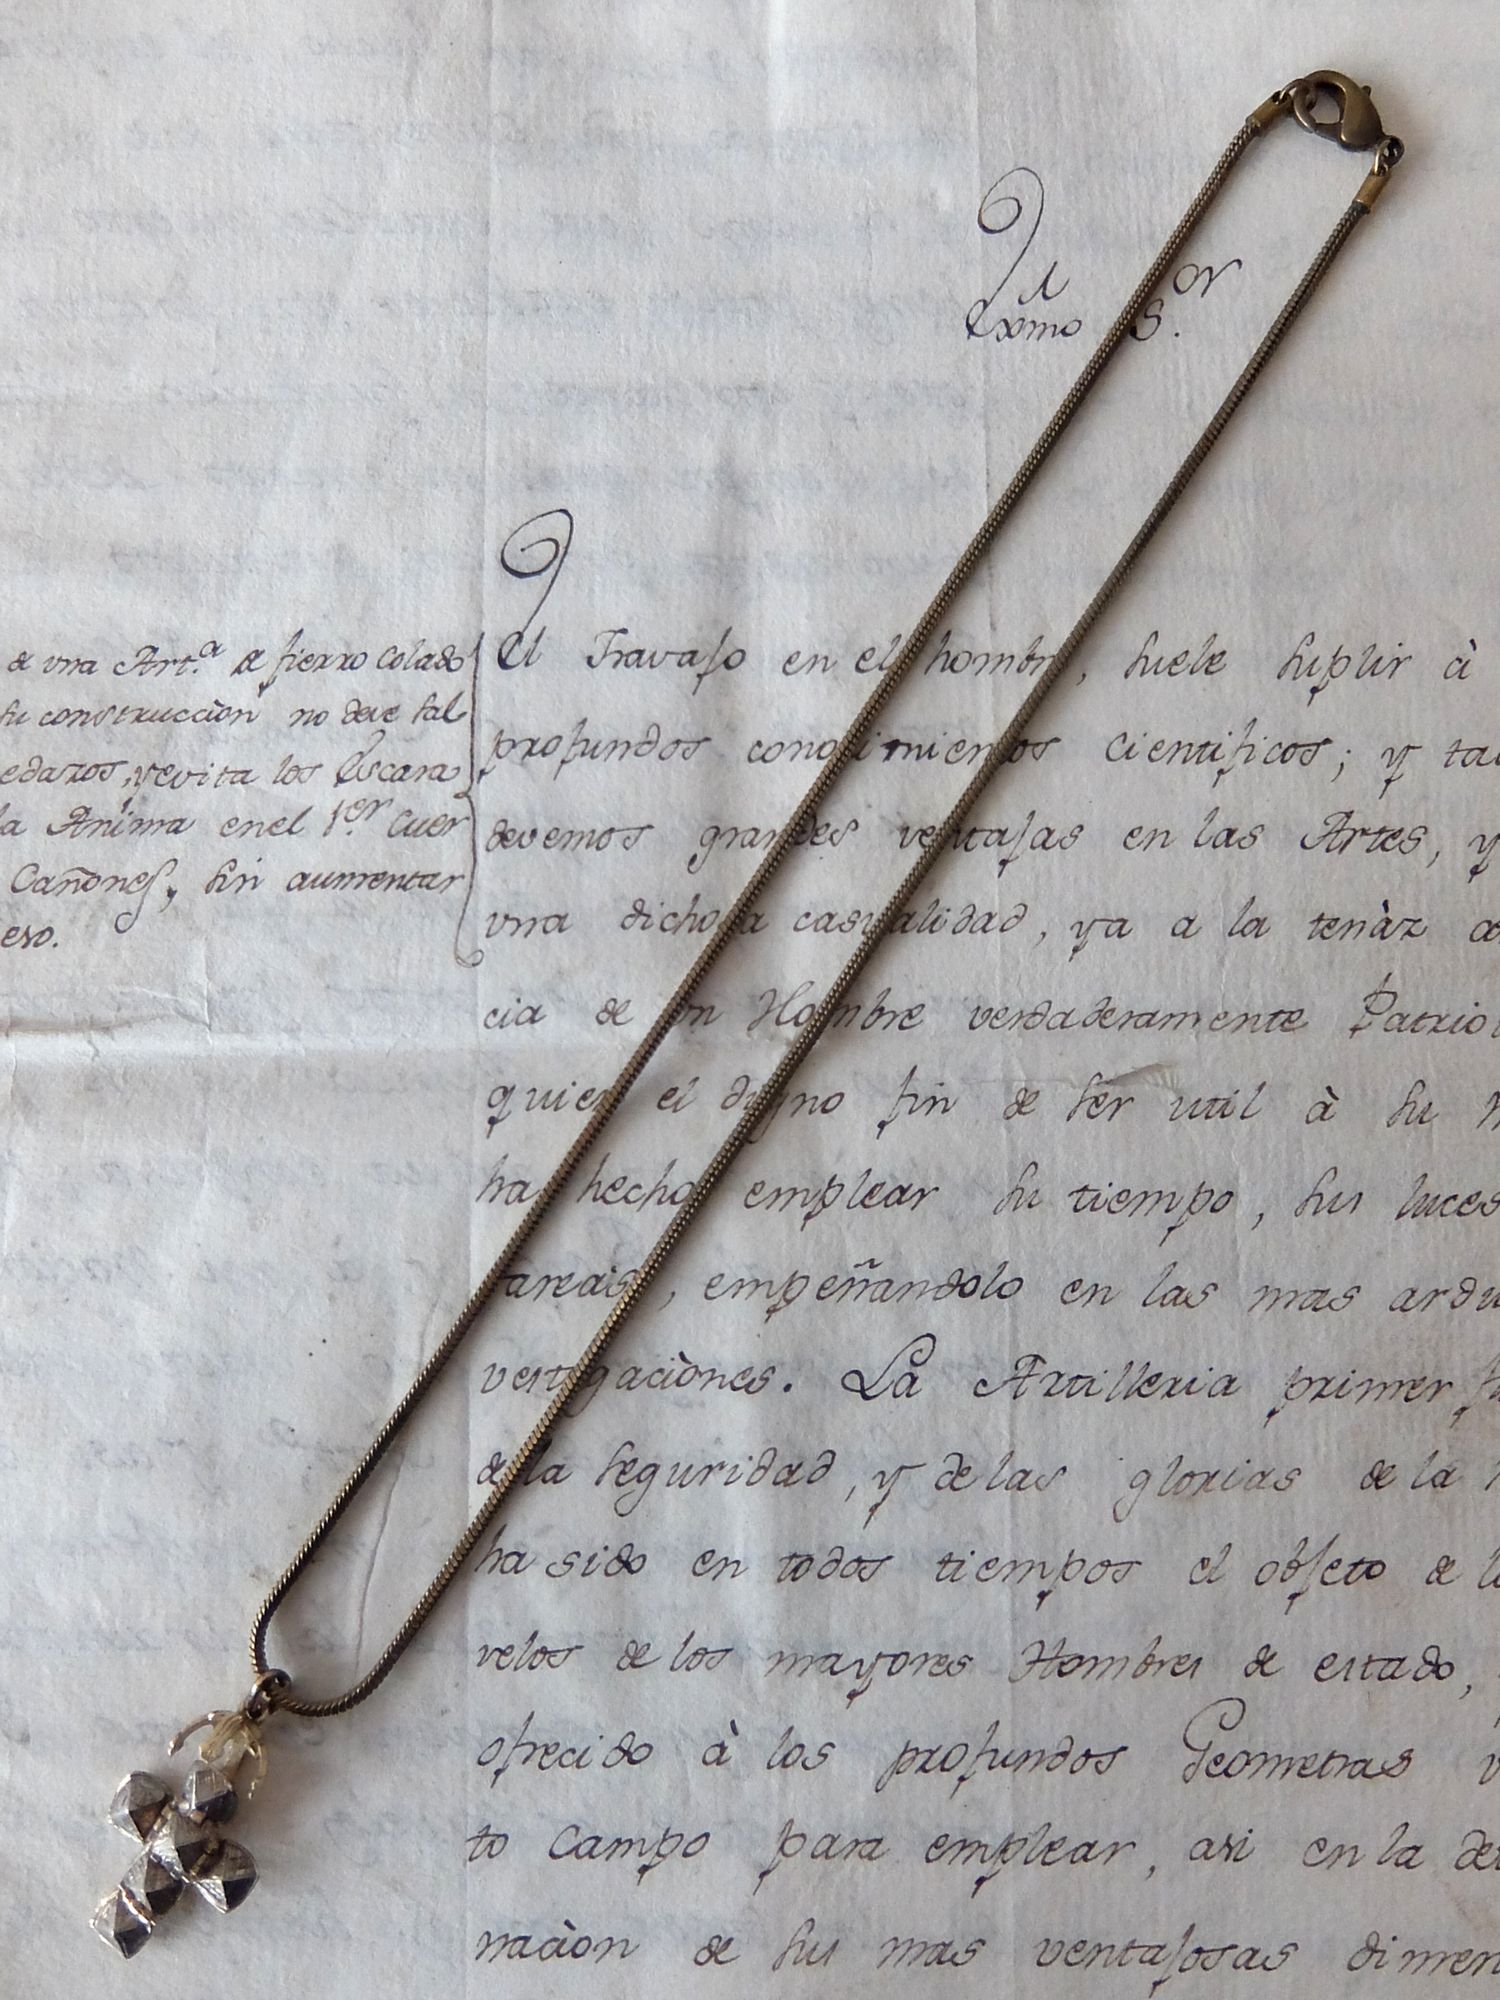 Exmo S.or
de una Art.a de fierro Colado
su construcciòn no deve sal
edazos, y evita los Escara
la Anima en el 1.er Cuer
Cañones, sin aumentar
eso.
El Travajo en el hombre, suele suplir à
profundos conocimientos cientificos; y tal
devemos grandes ventajas en las Artes, y
una dichosa casualidad, ya a la tenàz
cia de un Hombre verdaderamente Patrio
quien el digno fin de ser util à su
ha hecho emplear su tiempo, sus luces
tareas, empeñandolo en las mas ardu
vestigaciònes. La Artilleria primer
de la seguridad, y de las glorias de la
ha sido en todos tiempos el objeto de
velos de los mayores Hombres de estado,
ofrecido à los profundos Geometras
to Campo para emplear, asi en la
naciòn de sus mas ventajosas dimen